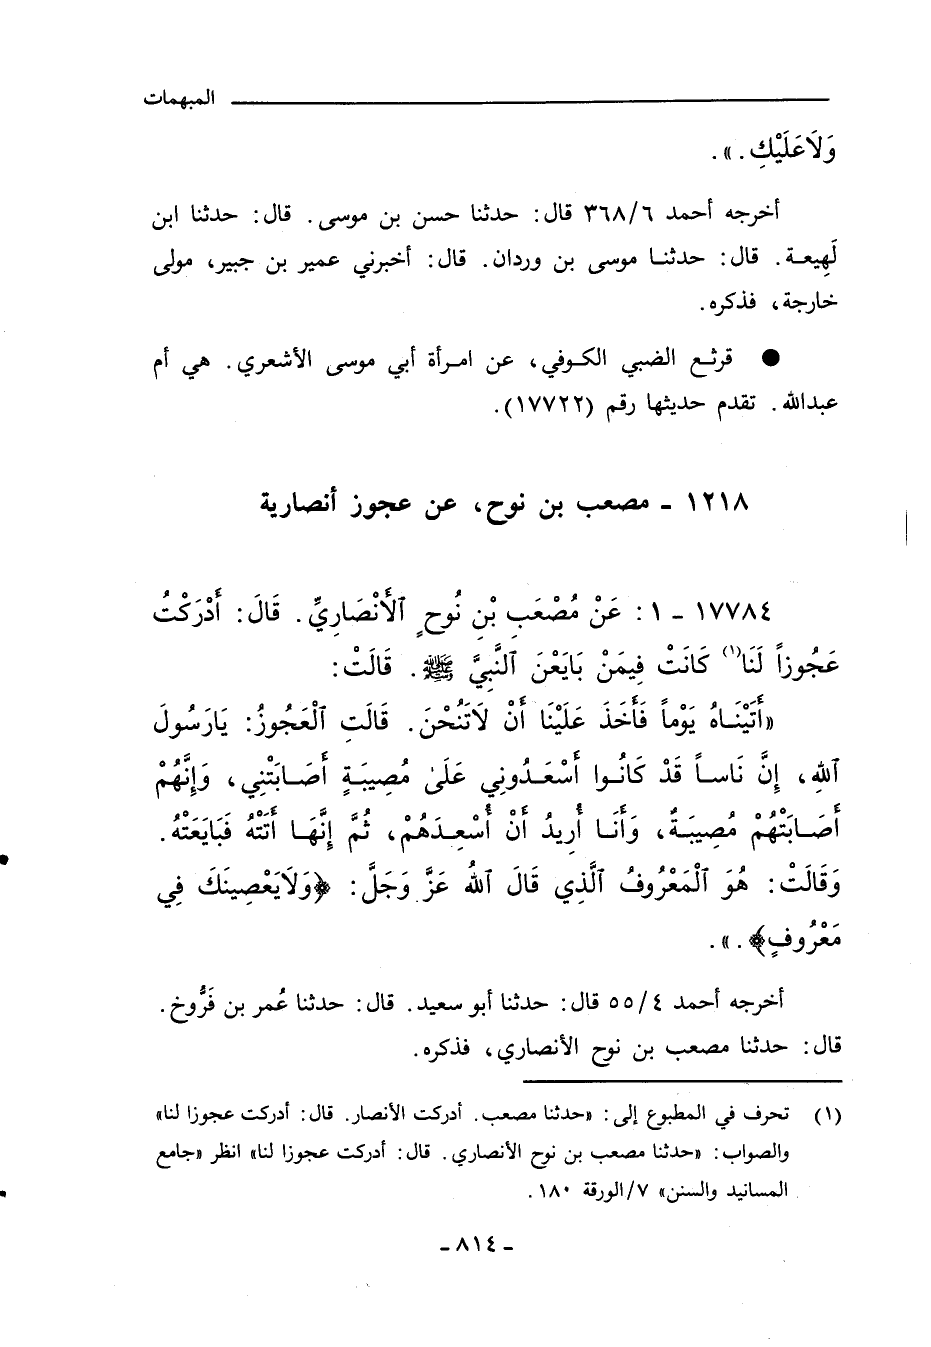 المبهمات
وَلَاعَلَيْكِ . » .
أخرجه أحمد ٣٦٨/٦ قال : حدثنا حسن بن موسى . قال : حدثنا ابن
لَهِيعـة . قال : حدثنـا موسى بن وردان . قال : أخبرني عمير بن جبير، مولى
خارجة ، فذكره .
● قرثـع الضبي الكـوفي ، عن امـرأة أبي موسى الأشعري . هي أم
عبدالله . تقدم حديثها رقم (١٧٧٢٢) .
١٢١٨ - مصعب بن نوح ، عن عجوز أنصارية
١٧٧٨٤ - ١ : عَنْ مُصْعَبِ بْنِ نُوحٍ ٱلْأَنْصَارِيِّ . قَالَ : أَدْرَكْتُ
عَجُوزاً لَنَا(١) كَانَتْ فِيمَنْ بَايَعْنَ ٱلنَّبِيَّ ﷺ . قَالَتْ :
«أَتَيْنَـاهُ يَوْماً فَأَخَذَ عَلَيْنَا أَنْ لَاتَنُحْنَ . قَالَتِ ٱلْعَجُوزُ : يَارَسُولَ
ٱللهِ ، إِنَّ نَاسـاً قَدْ كَانُـوا أَسْعَـدُونِي عَلَىٰ مُصِيبَةٍ أَصَـابَتْنِي ، وَإِنَّهُمْ
أَصَـابَتْهُمْ مُصِيبَـةٌ ، وَأَنَـا أُرِيدُ أَنْ أُسْعِـدَهُمْ ، ثُمَّ إِنَّهَـا أَتَتْهُ فَبَايَعَتْهُ .
وَقَالَتْ : هُوَ ٱلْمَعْرُوفُ ٱلَّذِي قَالَ ٱللهُ عَزَّ وَجَلَّ : ﴿وَلَايَعْصِينَكَ فِي
مَعْرُوفٍ﴾ . » .
أخرجه أحمد ٥٥/٤ قال : حدثنا أبو سعيد . قال : حدثنا عُمر بن فَرُّوخ .
قال : حدثنا مصعب بن نوح الأنصاري ، فذكره .
(١) تحرف في المطبوع إلى : «حدثنا مصعب . أدركت الأنصار . قال : أدركت عجوزا لنا»
والصواب : «حدثنا مصعب بن نوح الأنصاري . قال : أدركت عجوزا لنا» انظر «جامع
المسانيد والسنن» ٧/الورقة ١٨٠ .
- ٨١٤ -